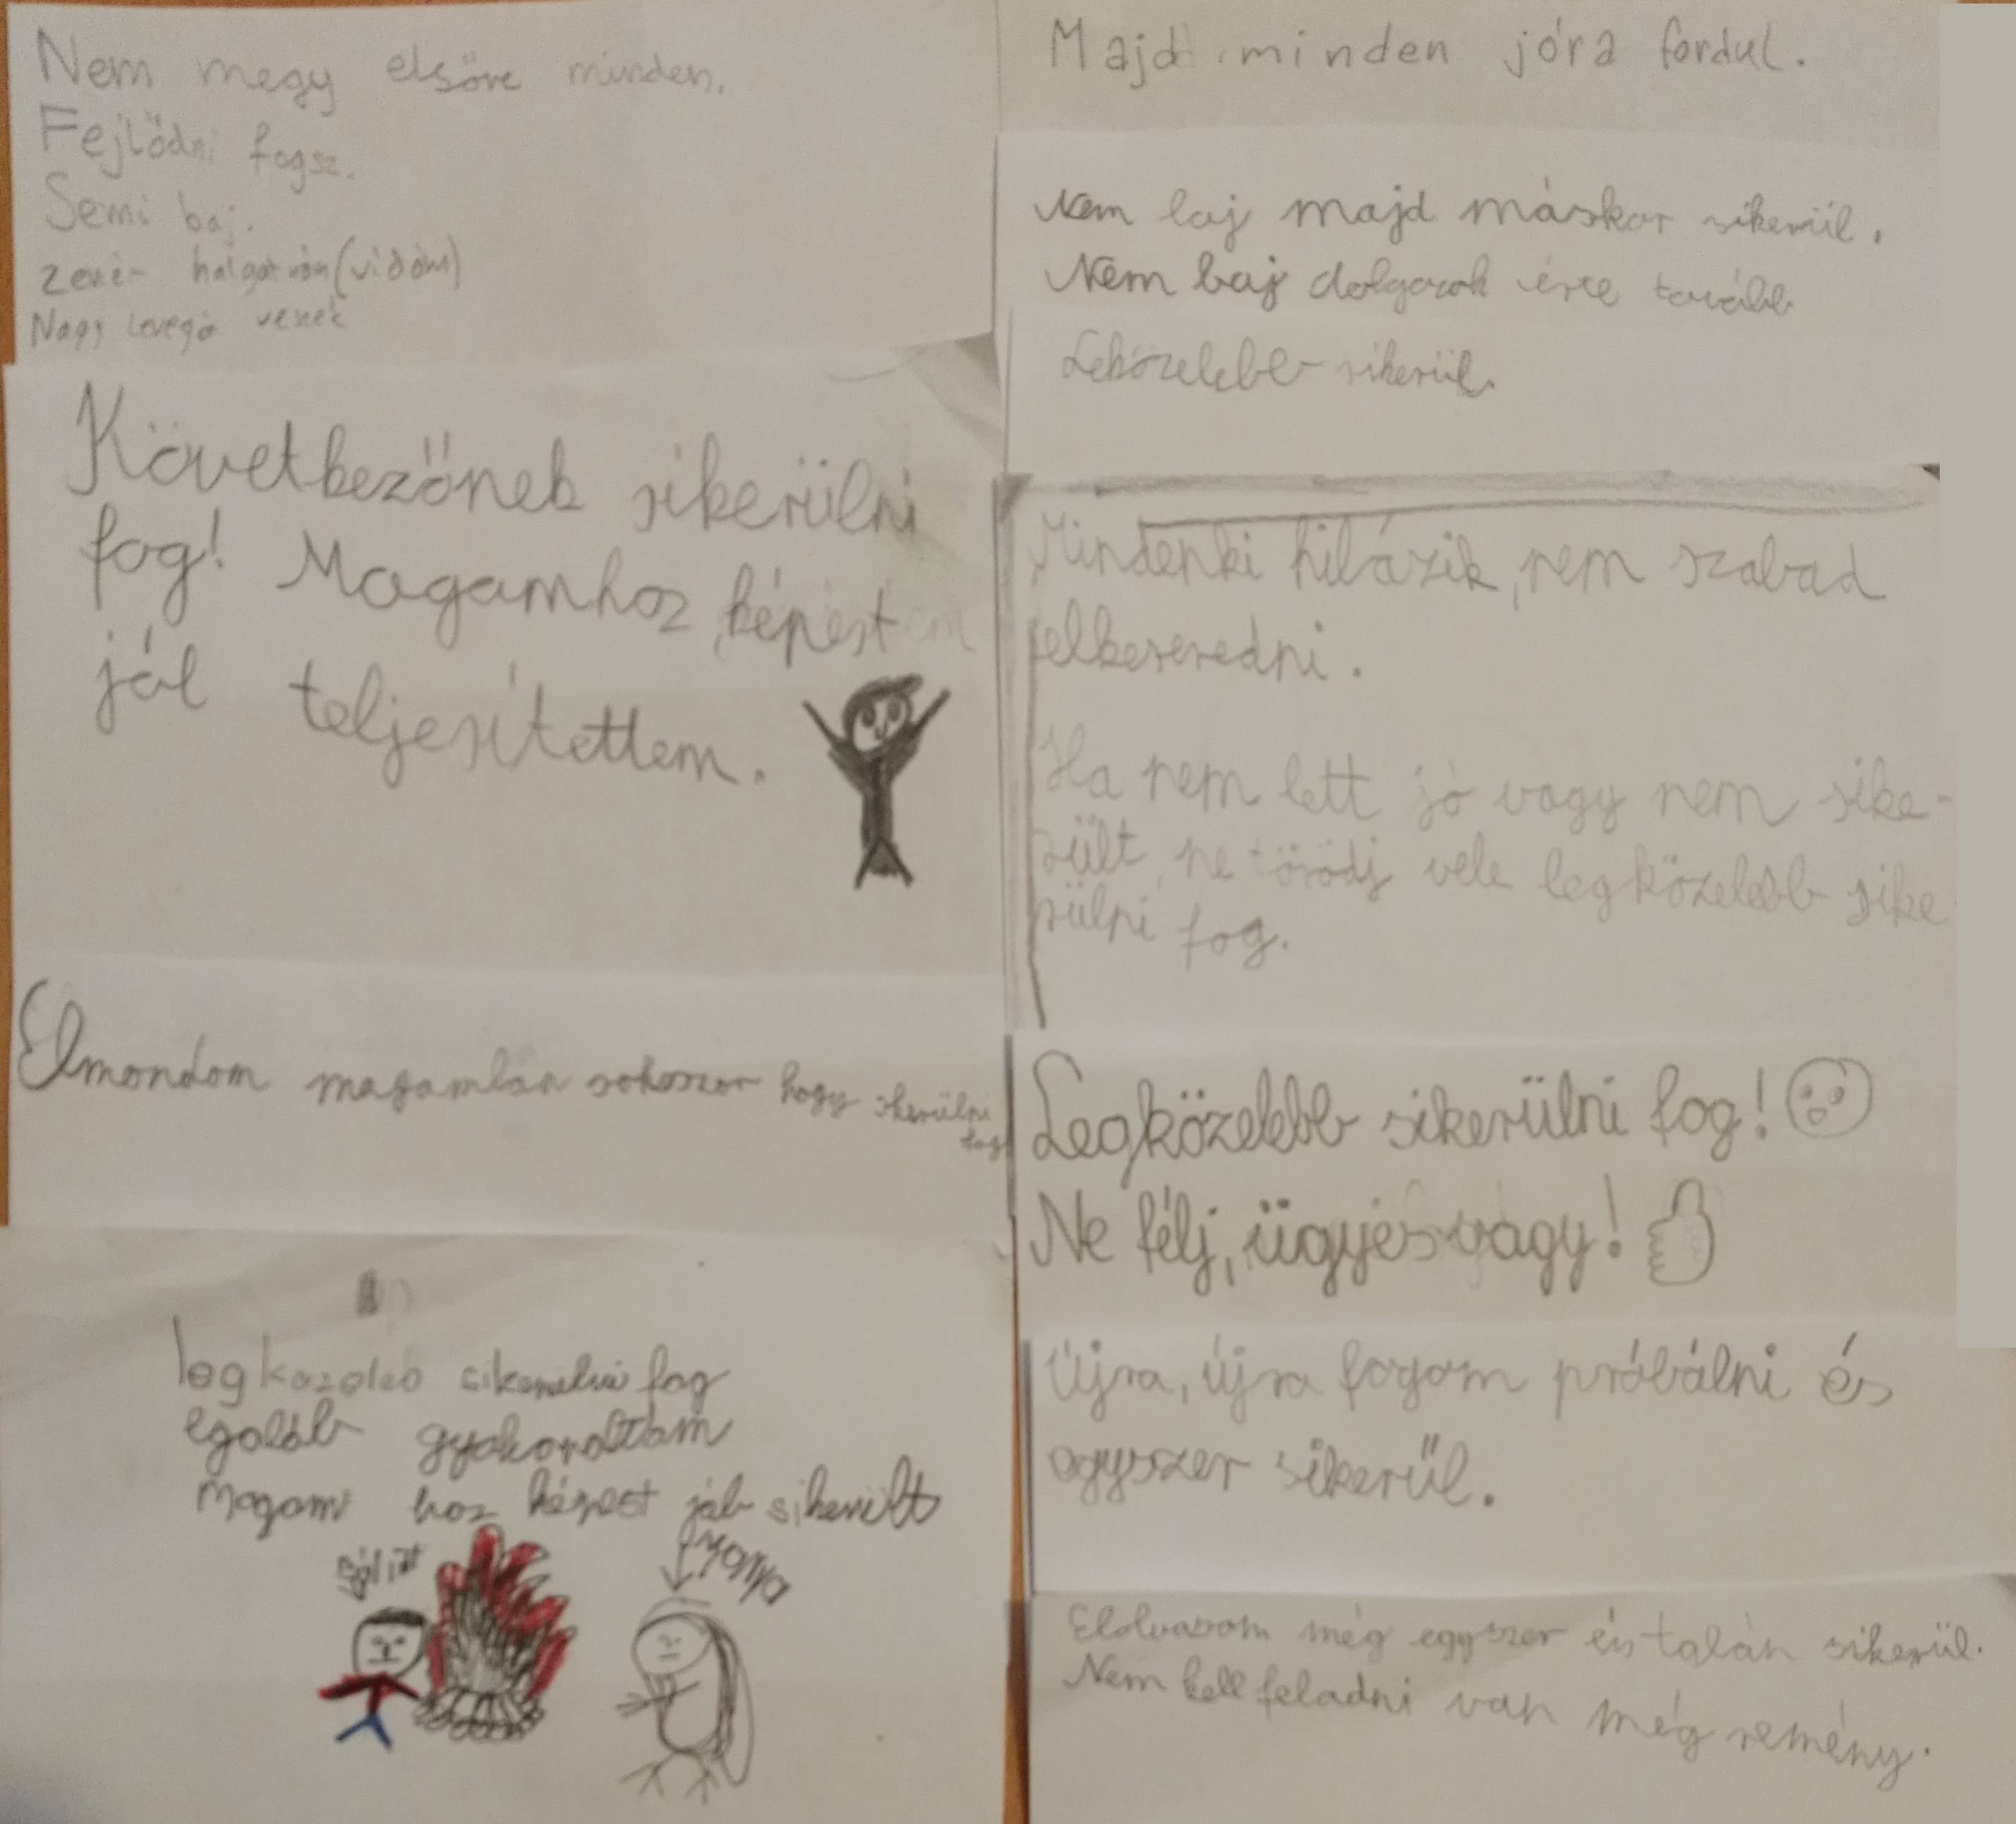 Nem megy elsőre minden.
Fejlődni fogsz.
Semi baj.
zenét halgatván (vidám)
Nagy levegő veszek
Következőnek sikerülni
fog! Magamhoz képest
jól teljesítettem.
Elmondom magamban sokszor hogy sikerülni
fog
legkozoleb sikerulni fog
egalább gyakoroltam
Magam hoz képest jób sikerült
Majd minden jóra fordul.
Nem baj majd máskor sikerül.
Nem baj dolgozok érte tovább
Leközelebb sikerül.
Mindenki hibázik, nem szabad
elkeseredni.
Ha nem lett jó vagy nem sike-
rült, ne törödj vele legközelebb sike
rülni fog.
Legközelebb sikerülni fog!
Ne félj, ügyes vagy!
Újra, újra fogom próbálni és
egyszer sikerül.
Elolvasom még egyszer és talán sikerül.
Nem kell feladni van még remény.